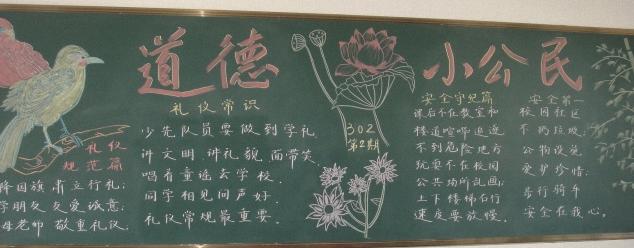 道德
小公民
礼仪
规范篇
国旗肃立行礼;
学朋友友爱诚意;
母老师敬重礼仪.
礼仪常识
少先队员要做到学礼
讲文明.讲礼貌.面带笑.
唱着童谣去学校.
同学相见问声好.
礼仪常规最重要.
302
第2期
安全守纪篇
课后不在教室和
楼道喧哗追逐
不到危险地方
玩耍不在校园
公共场所乱画;
上下楼梯右行
速度要放慢.
安全第一
校园社区
不扔垃圾.
公物设施
爱护珍惜.
步行骑车
安全在我心.